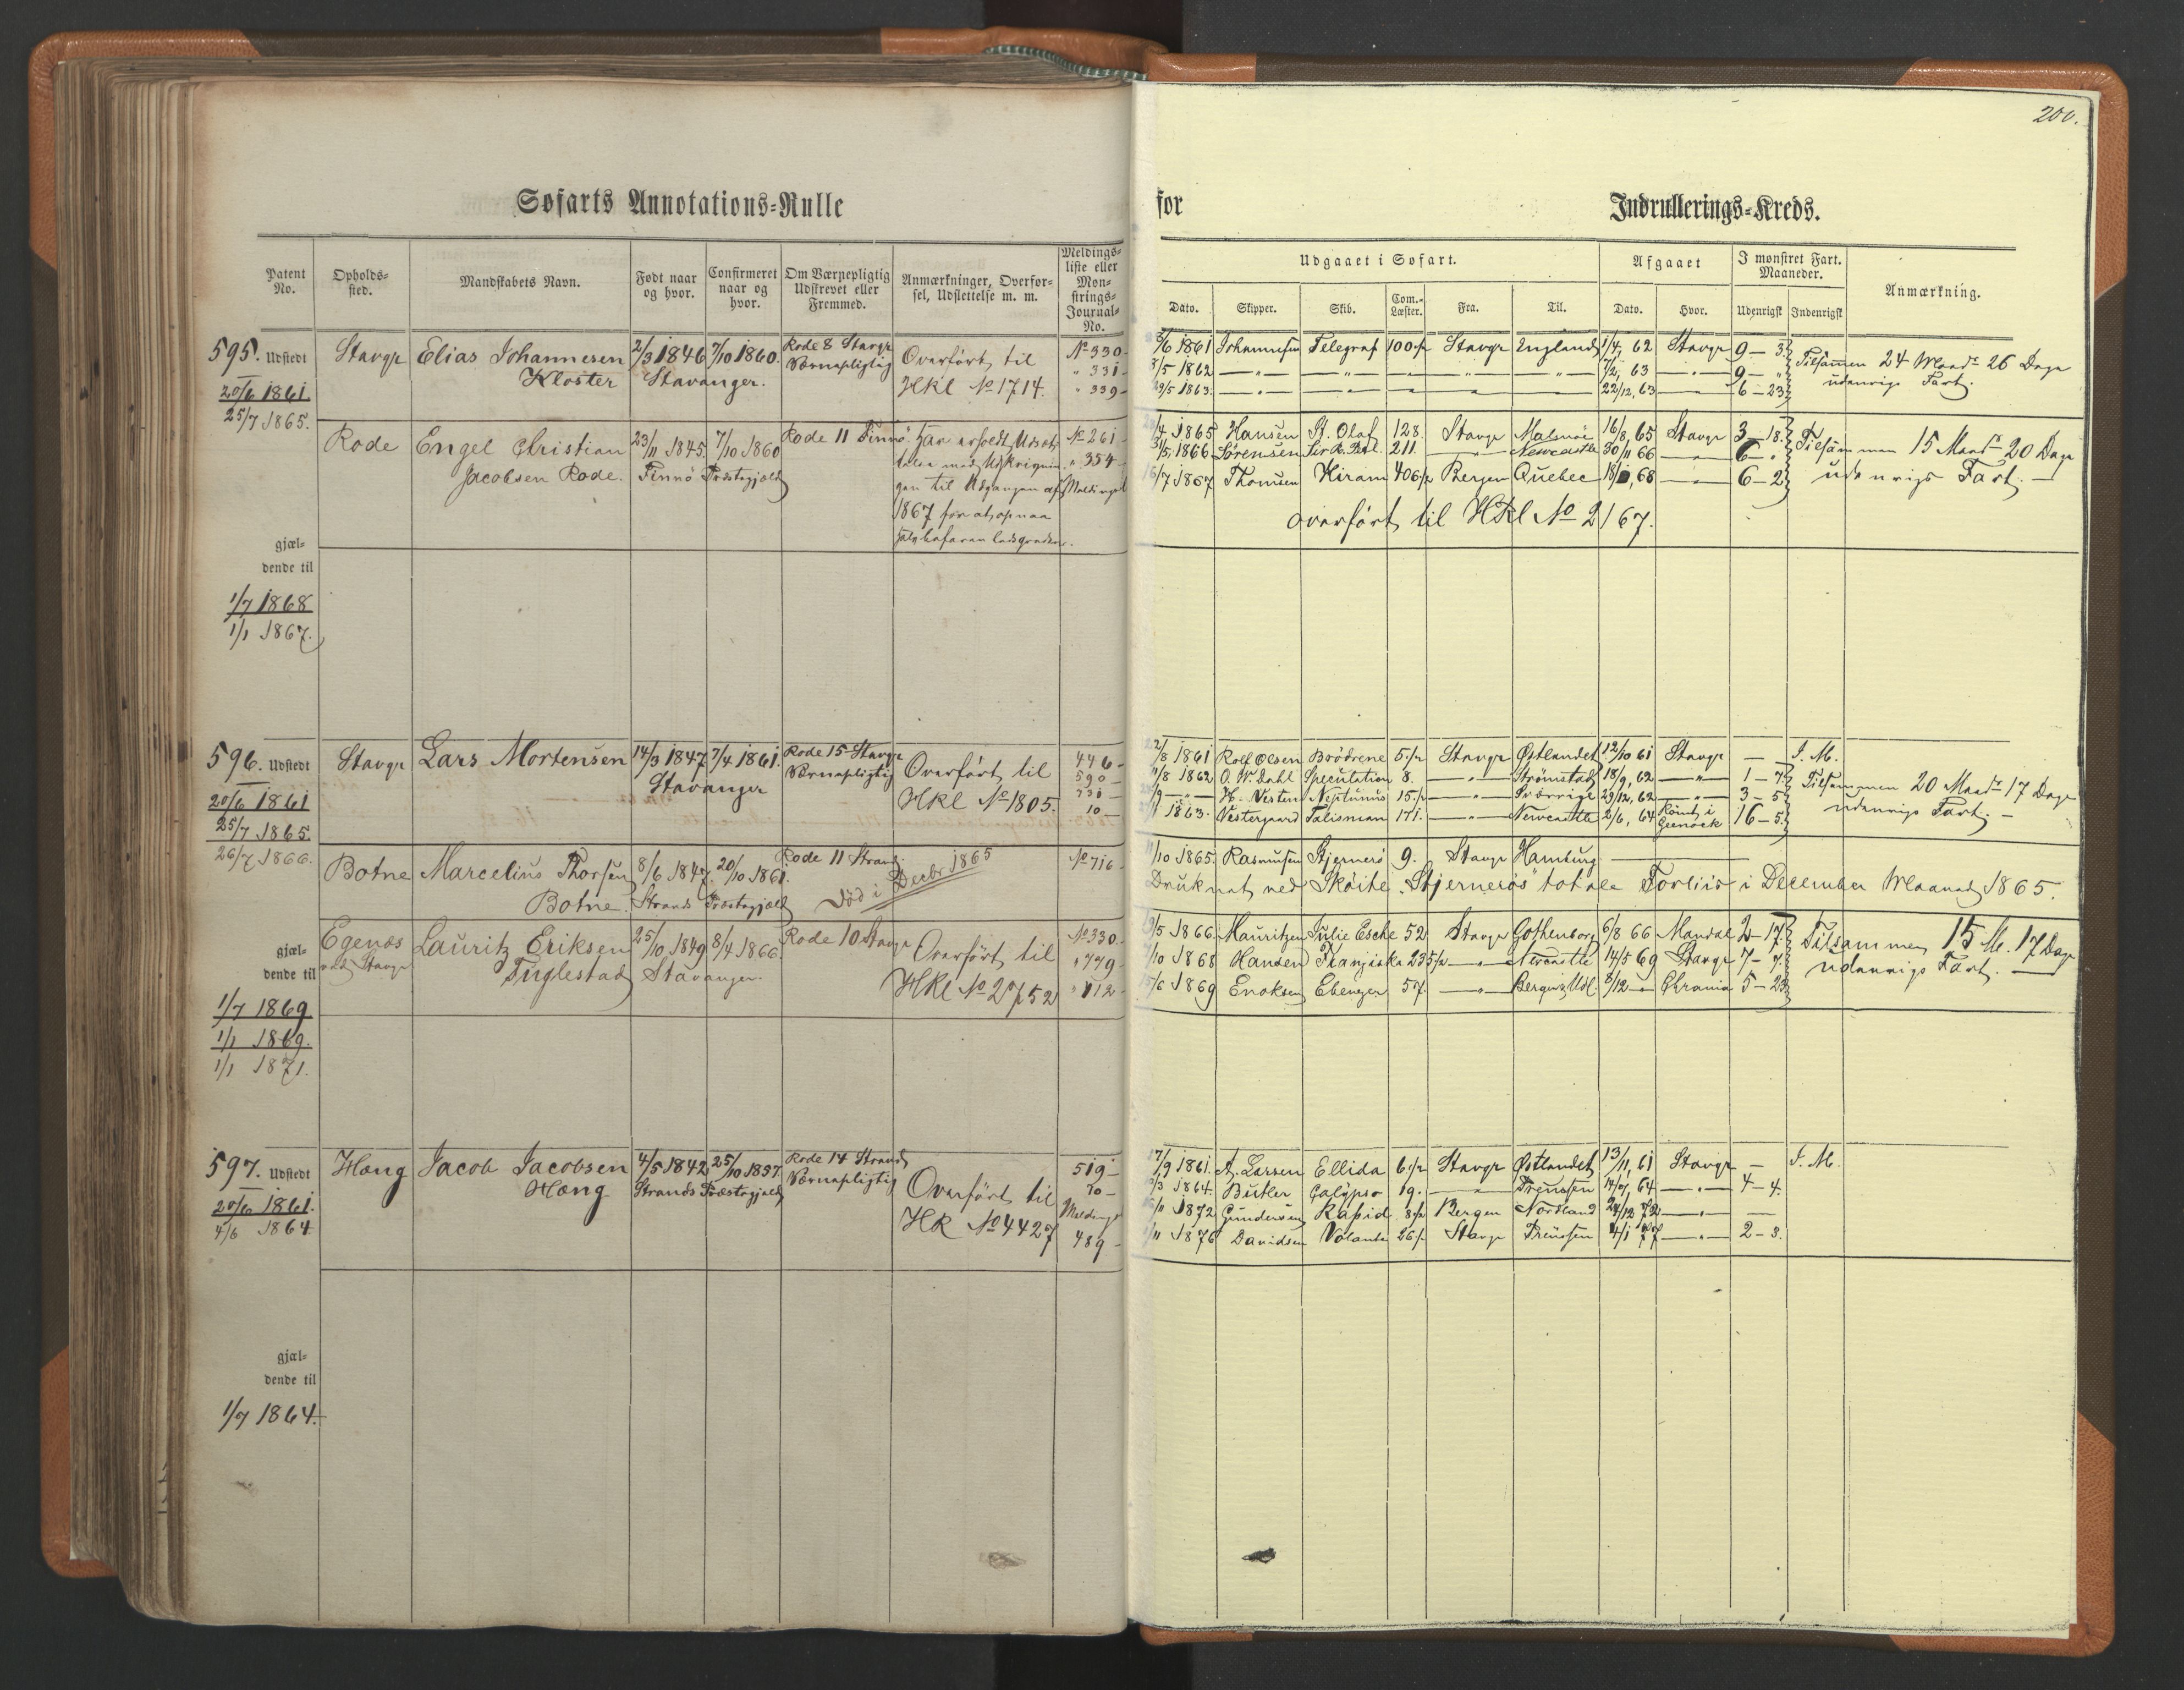 200.
Søfarts Annotations=Rulle
for
Indrullerings=Kreds.
Patent No.
Opholds=sted.
Mandskabets Navn.
Født naar og hvor.
Confirmeret naar og hvor.
Om Værnepligtig Udskrevet eller Fremmed.
Anmærkninger, Overfør=sel, Udslettelse m. m.
Meldings=liste eller Møn=strings=Journal=No.
Udgaaet i Søfart.
Afgaaet
I mønstret Fart. Maaneder.
Anmærkning.
Dato.
Skipper.
Skib.
Com.=Læster.
Fra.
Til.
Dato.
Hvor.
Udenrigst
Indenrigst
595. Udstedt
20/6 1861.
25/7 1865.
Stavgr Elias Johannesen 2/3 1846 7/10 1860. Rode 8 Stavgr Overført til No 330
Kloster Stavanger. Værnepligtig HKl No 1714. " 331
" 339
3/6 1861 Johannesen Telegraf 100 1/2 Stavgr England 1/4, 62 Stavgr 9 — 3. Tilsammen 24 Maadr 26 Dage
/5 1862 — " — 7/2, 63 — " — 9 — " udenrigs Fart.
29/5 1863. — " — 22/12, 63 6 — 23
Rode Engel Christian 23/11 1845. 7/10 1860 Rode 11 Finnø Har erholdt Udsæt= No 261
Jacobsen Rode. Finnø Præstegjeld telse med Udskrivnin " 354
gen til Udgangen af Meldingsl
1867 for at opnaa
/4 1865 Hansen St. Olaf 128. Stavgr Malmøe 16/8, 65 Stavgr 3 — 18. Tilsammen 15 Maadr 20 Dage
31/5 1866 Sørensen Sir R. Peel 211. — " — Newcastle 30/11 66 — " — 6 — " udenrigs Fart. —
16/7 1867 Thomsen Hiram 406 1/2 Bergen Quebec 18/, 68 — " — 6 — 2
overført til HKl No 2167.
gjæl=
dende til
1/7 1868
1/1 1867.
596. Udstedt
20/6 1861
25/7 1865.
26/7 1866.
Stavgr Lars Mortensen 14/3 1847 7/4 1861. Rode 15 Stavgr Overført til 446
Stavanger Værnepligtig HKl No 1805. 590
10
2/8 1861 Rolf Olsen Brødrene 5 1/2 Stavgr Østlandet 12/10 61 Stavgr — — I. M.
11/8 1862 O. W. Dahl Speculation 8. — " — Strømstad 18/9, 62 — " — 1 — 7 Tilsammen 20 Maadr 17 Dage
/9 — " — H. Vesten Neptunus 15 1/2 — " — Sverrige 29/12, 62 — " — 3 — 5 udenrigs Fart. —
/1 1863. Vestergaard Talisman 171. — " — Newcastle 2/6, 64 Rømt i Greenock 16 — 5.
Botne Marcelius Thorsen 8/6 1847. 20/10 1861. Rode 11 Strand. No 716
Botne. Strands Præstegjeld Död i Decbr 1865
11/10 1865. Rasmussen Stjernerö 9. Stavgr Hamburg
Druknet ved Skøite "Stjernerös" totale Forliis i December Maaned 1865.
Egenæs ved Stavgr Lauritz Eriksen 25/10 1849 8/4 1866. Rode 10 Stavgr Overført til No 330.
Fuglestad Stavanger. HKl No 2752 " 779
" 112
/5 1866. Mauritzen Julie Esche 52 Stavgr Gothenborg 6/8 66 Mandal 2 — 17. Tilsammen 15 M. 17 Dage
/10 1868 Hansen Franziska 235 1/2 — " — Newcastle 14/5 69 Stavgr 7 — 7. udenrigs Fart. —
15/6 1869 Enoksen Ebenezer 57. — " — 8/12 — " — Chrania 5 — 23
gjæl=
dende til
1/7 1869
1/1 1869.
1/1 1871.
597. Udstedt
20/6 1861.
4/6 1864.
Hæng Jacob Jacobsen 4/5 1842 25/10 1857. Rode 14 Strand Overført til 519
Hæng Strands Præstegjeld Værnepligtig HK No 4427 70
Meldingsl
489
17/9 1861. A. Larsen Ellida 6 1/2 Stavgr Østlandet 13/11, 61 Stavgr — I. M.
/3 1864. Butler Calypso 19. — " — Preussen 14/7, 64 — " — 4 — 4.
/11 1872 Gundersen Rapid 8 1/2 Bergen Nordland 24/12 72 — " — —
/11 1876 Davidsen Volante 26 1/2 Stavgr Preussen 4/1 77 — " — 2 — 3.
gjæl=
dende til
1/7 1864.